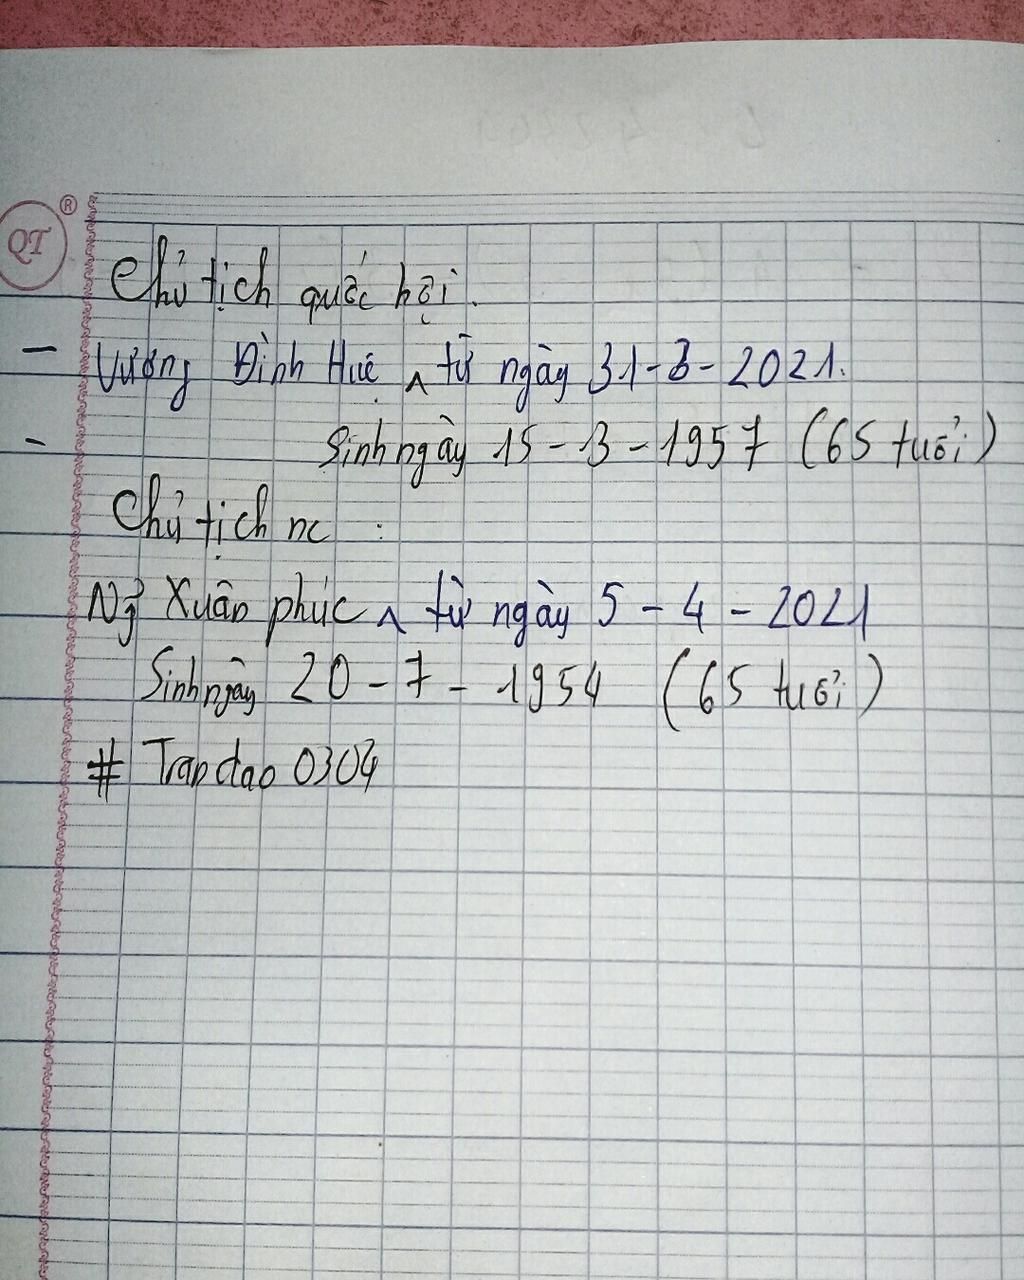 QT ®
Chủ tịch quốc hội.
- Vương Đình Huệ ^ từ ngày 31-3-2021.
- Sinh ngày 15-3-1957 (65 tuổi)
Chủ tịch nc :
Ng̃ Xuân phúc ^ từ ngày 5-4-2021
Sinh ngày 20-7-1954 (65 tuổi)
# Tran dao 0304